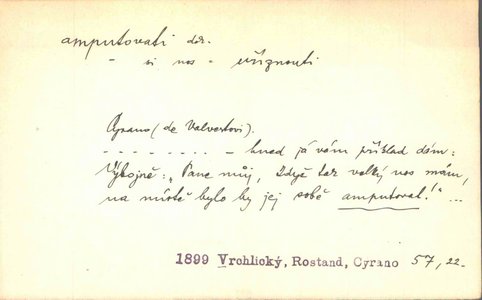 amputovati dok.
- si nos - uříznouti
Cyrano (de Valvertovi).
- - - - - - - - hned já vám příklad dám:
Výbojně: „Pane můj, když tak velký nos mám,
na místě bylo by jej sobě amputovat!" ...
1899 Vrchlický, Rostand, Cyrano 57, 22.